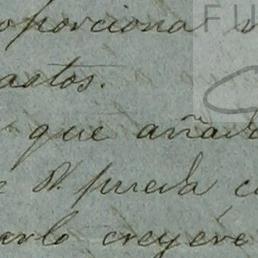 oporciona
astos.
que añad
V. pueda c
arlo creyere